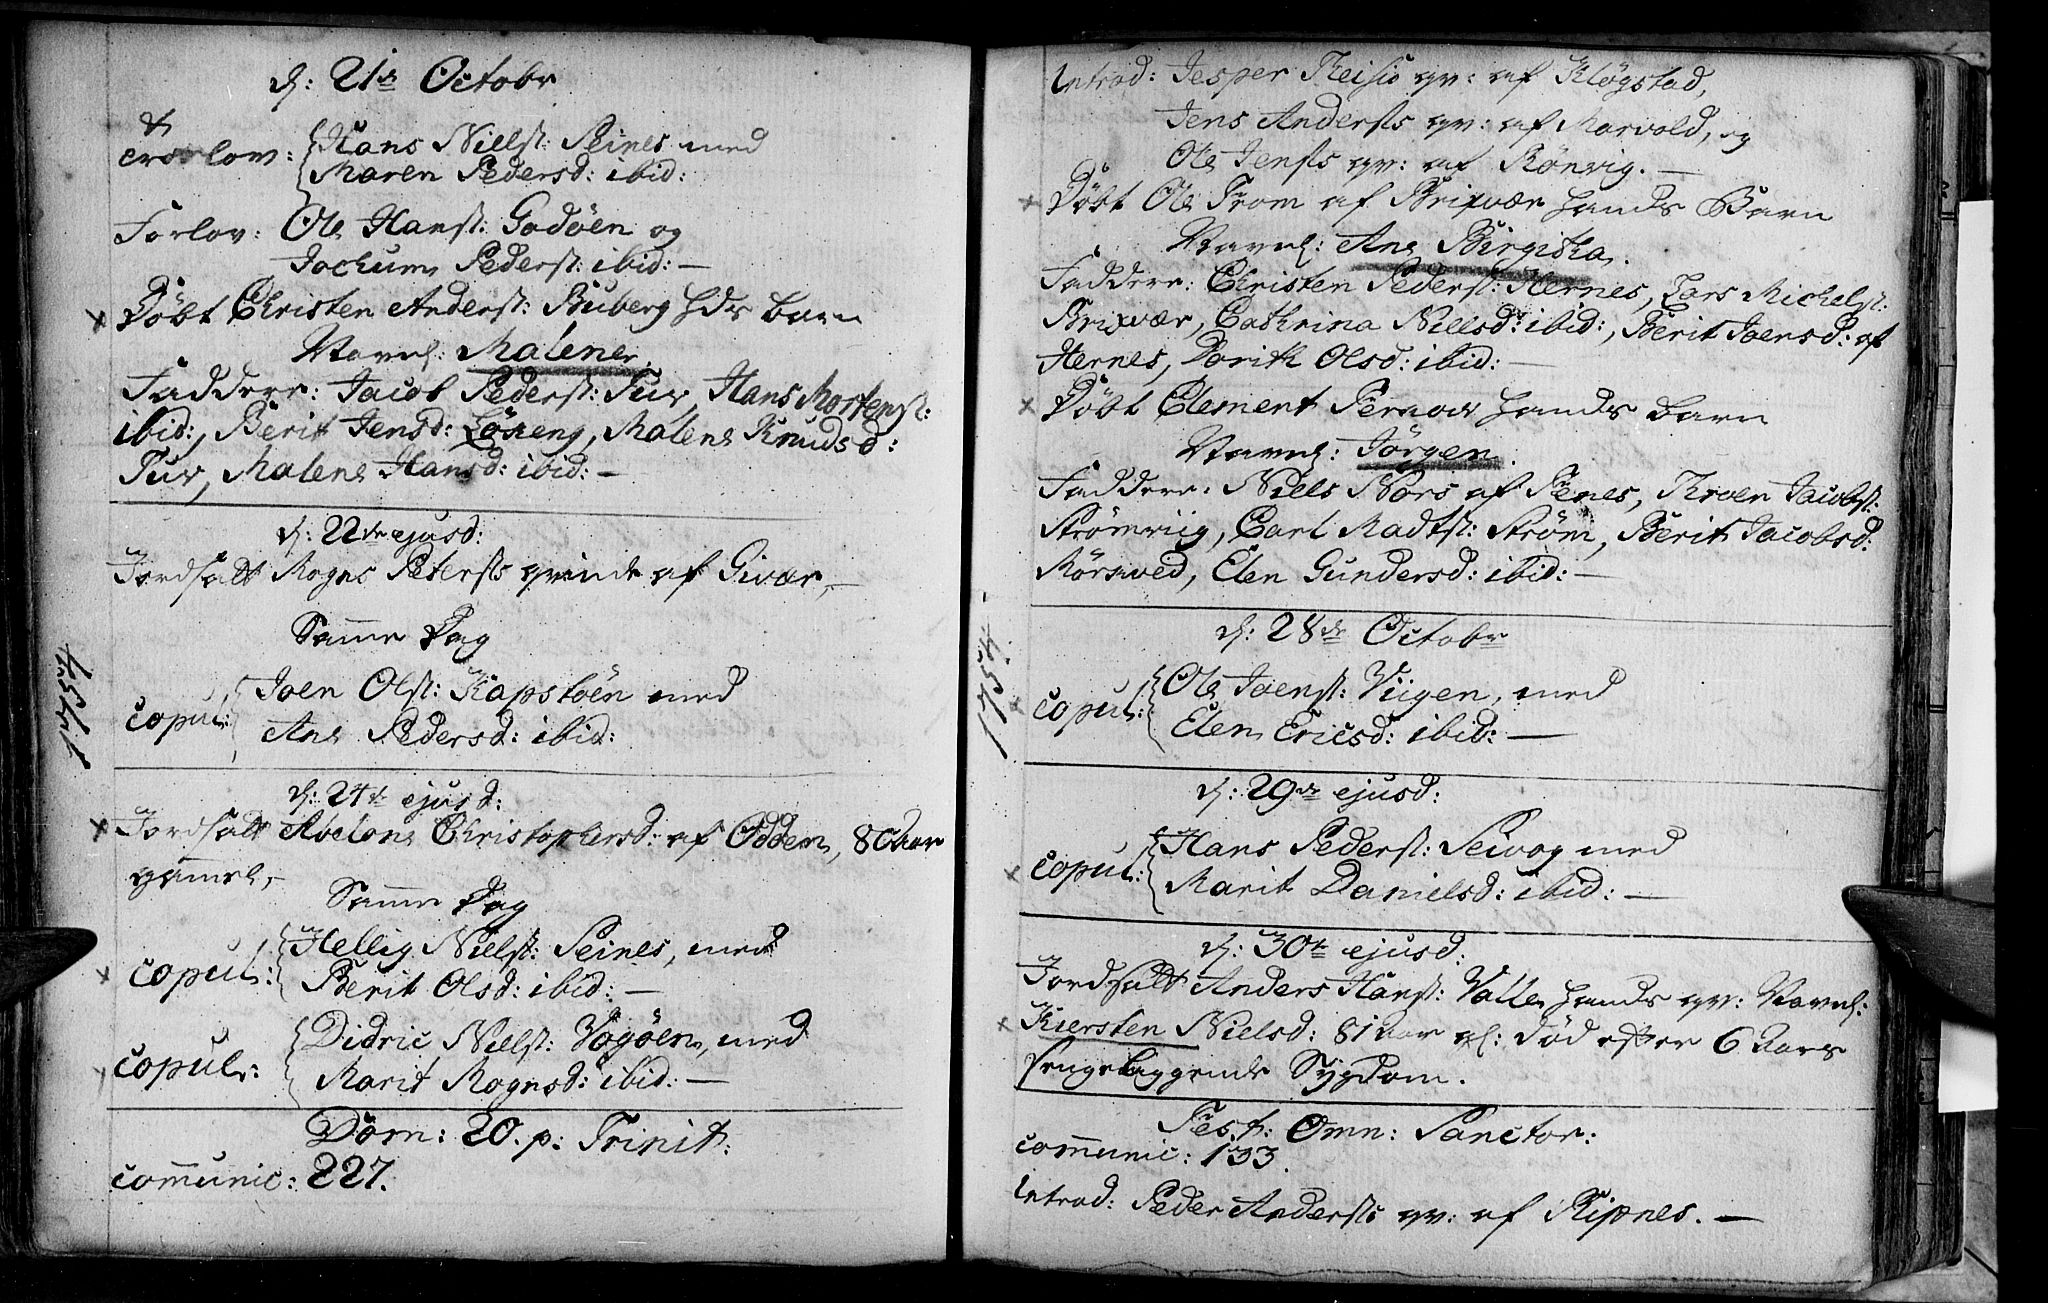 d: 21de Octobr
Trolov: Hans Nielss: Seines med
Maren Pedersd: ibid:
Forlov: Ole Hanss: Godöen og
Jochum Peders: ibid: —
Döbt Christen Anders: Buberg Hds barn
Navnl: Malene.
Faddere: Jacob Peders: Tuv, Hans Mortens:
ibid:, Berit Jensd: Löseng, Malene Knudsd:
Tuv, Malene Hansd: ibid: —
d: 22de ejusd:
Jordfæst Mogns Peters qvinde af Givær, —
Samme Dag
copul: Joen Ols: Kapstöen med
Ane Pedersd: ibid:
1754
d: 24de ejusd:
Jordfæst Abelone Christophersd: af Odden, 80 Aar
gamel, —
Samme Dag
copul: Hellig Niels: Seines, med
Berit Olsd: ibid: —
copul: Didric Niels: Vogöen, med
Marit Mognsd: ibid: —
Dom: 20. p: Trinit:
communic: 227.
Introd: Jesper qv: af Klögstad,
Jens Anders qv: af Marvold, og
Ole Jens qv: af Rönvig. —
Döbt Ole Trom af Brixvær Hands Barn
Navnl: Ane Birgitha.
Faddere: Christen Peders: Hernes, Lars Michels:
Brixvær, Cathrina Nielsd: ibid:, Berit Joensd: af
Hernes, Dorith Olsd: ibid: —
Döbt Clement Hands barn
Navnl: Jörgen.
Faddere: Niels Nors af Seines, Jacobs:
Strömviig, Carl Madts: Ström, Berit Jacobsd:
Rörsved, Elen Gundersd: ibid: —
1754.
d: 28de Octobr
copul: Ole Joens: Viigen, med
Elen Ericsd: ibid: —
d: 29de ejusd:
copul: Hans Peders: Seivog med
Marit Danielsd: ibid: —
d: 30te ejusd:
Jordfæst Anders Hans: Valle Hands qv: Navnl:
Kiersten Nielsd: 81 Aar gl: död efter 6 Aars
sengeliggende Sygdom.
Fest: Omn: Sanctor:
communic: 133.
Introd: Peder Anders: qv: af Ripnes. —